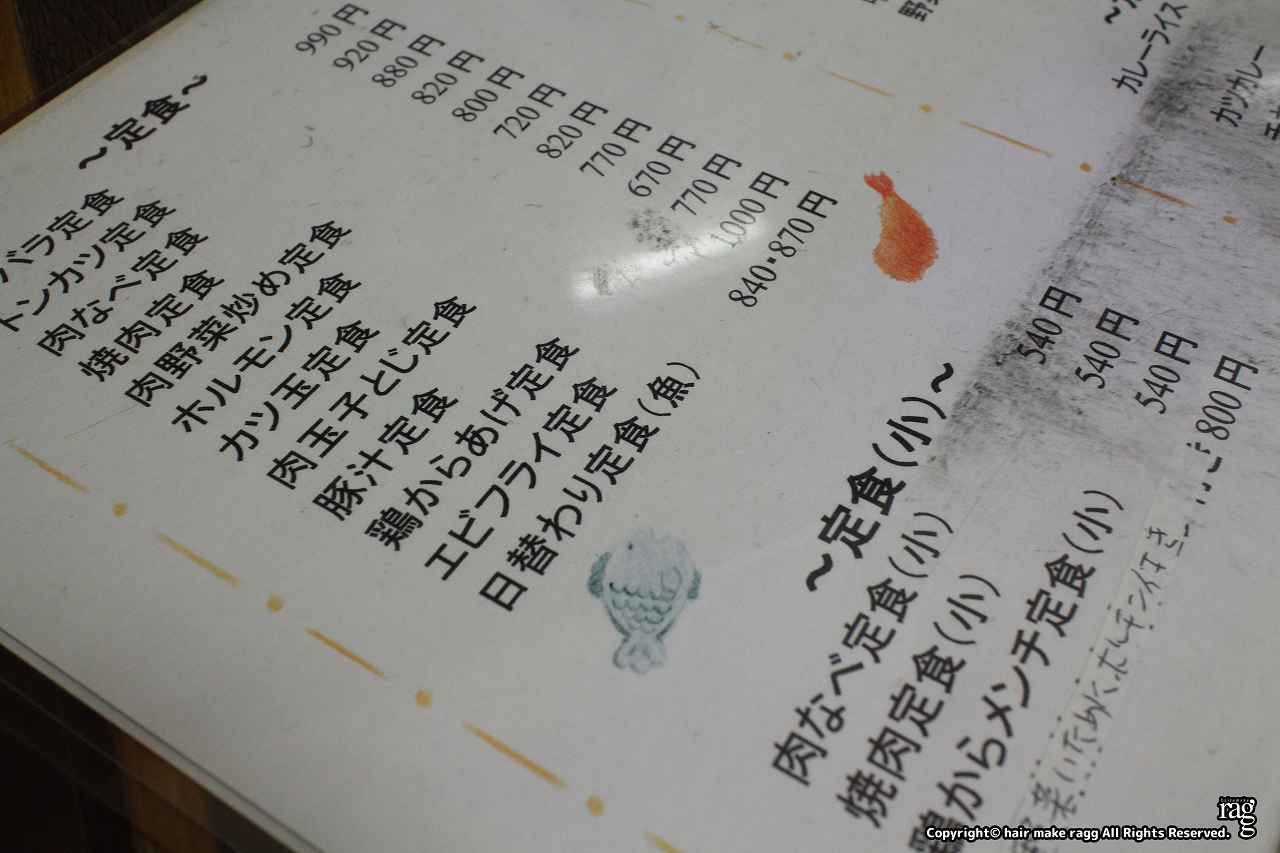 ～定食～
バラ定食 990円
トンカツ定食 920円
肉なべ定食 880円
焼肉定食 820円
肉野菜炒め定食 800円
ホルモン定食 720円
カツ玉定食 820円
肉玉子とじ定食 770円
豚汁定食 670円
鶏からあげ定食 770円
エビフライ定食 1000円
日替わり定食(魚) 840・870円
～定食(小)～
肉なべ定食(小) 540円
焼肉定食(小) 540円
鶏からメンチ定食(小) 540円
800円
カレーライス
カツカレー
rag
g
Copyright© hair make ragg All Rights Reserved.